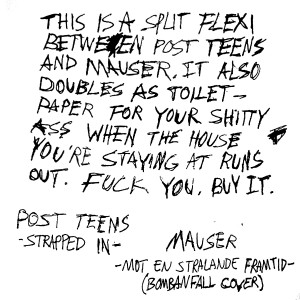 THIS IS A SPLIT FLEXI
BETWEEN POST TEENS
AND MAUSER. IT ALSO
DOUBLES AS TOILET-
PAPER FOR YOUR SHITTY
ASS WHEN THE HOUSE
YOU'RE STAYING AT RUNS
OUT. FUCK YOU, BUY IT.
POST TEENS
-STRAPPED IN-
MAUSER
-MOT EN STRALANDE FRAMTID-
(BOMBANFALL COVER)